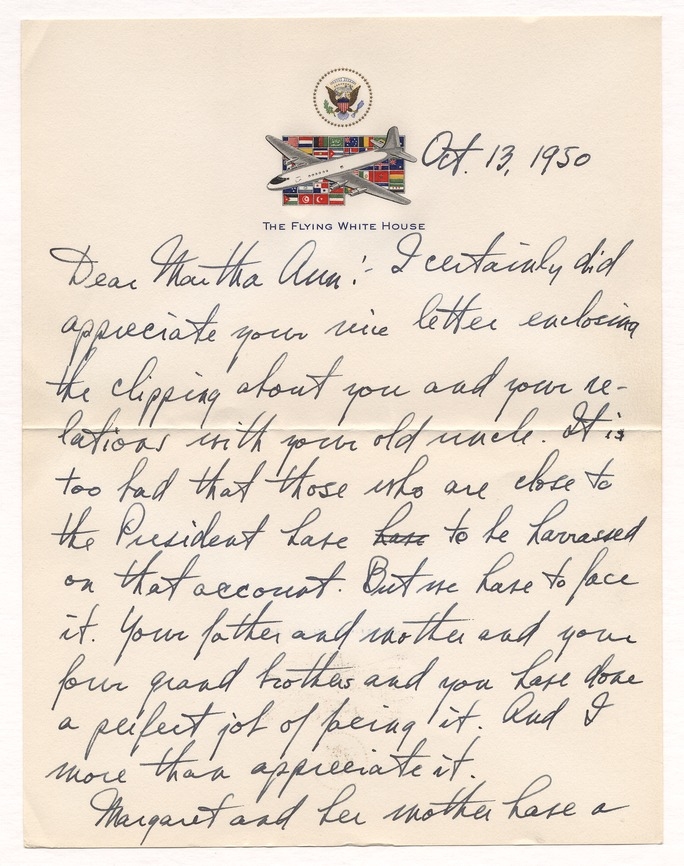 Oct. 13, 1950
THE FLYING WHITE HOUSE
Dear Martha Ann:- I certainly did
appreciate your nice letter enclosing
the clipping about you and your re-
lations with your old uncle. It is
too bad that those who are close to
the President have have to be harrassed
on that account. But we have to face
it. Your father and mother and your
four grand brothers and you have done
a perfect job of facing it. And I
more than appreciate it.
Margaret and her mother have a